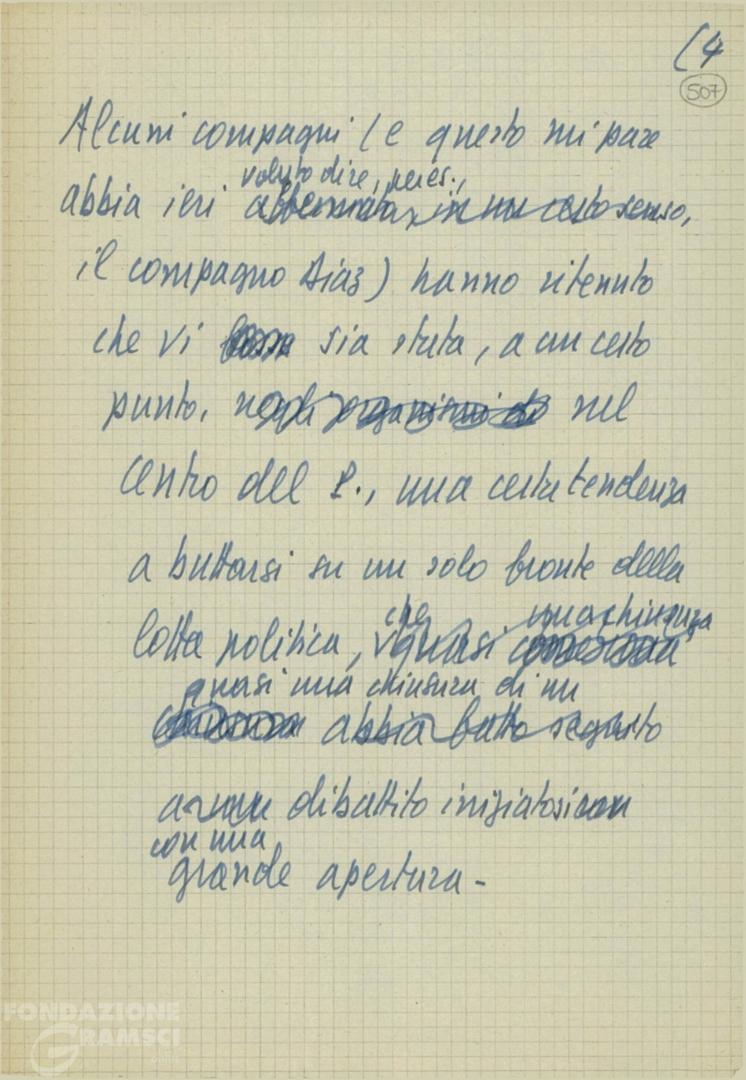 (4
507
Alcuni compagni (e questo mi pare
voluto dire, per es.,
abbia ieri affermato, in un certo senso,
il compagno Diaz) hanno ritenuto
che vi sia stata, a un certo
punto, negli organismi di nel
centro del P., una certa tendenza
a buttarsi su un solo fronte della
che una chiusura
lotta politica, quasi
quasi una chiusura di un
abbia fatto seguito
a un dibattito iniziatosi con
con una
grande apertura -
FONDAZIONE
GRAMSCI